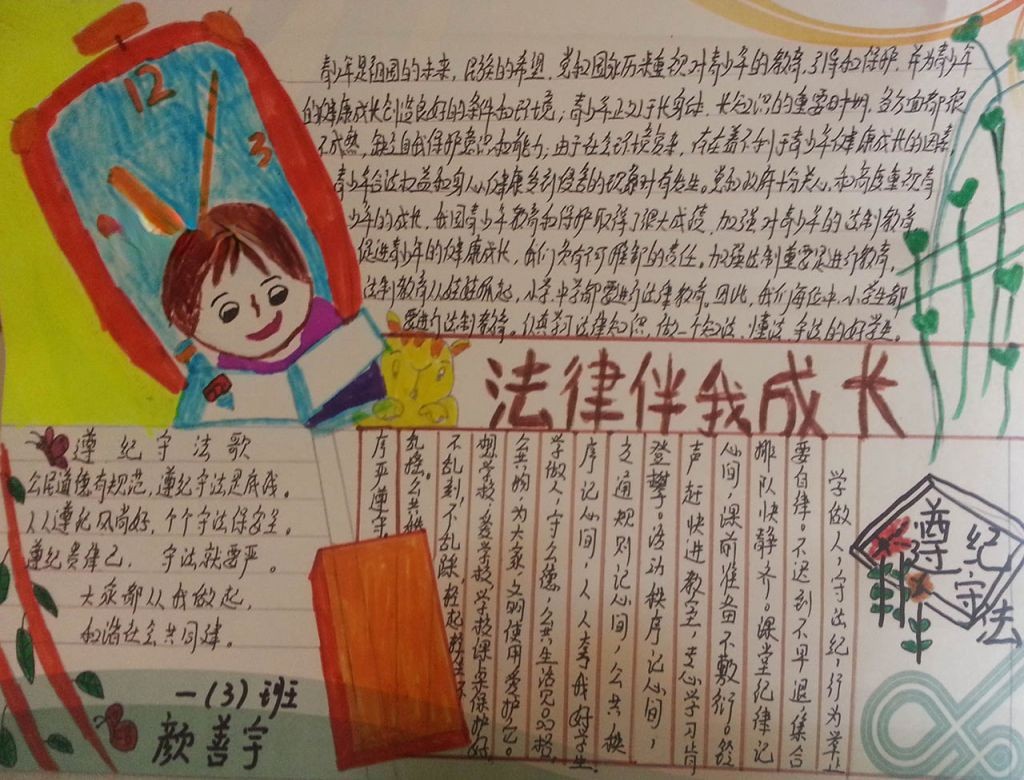 12
3
青少年是祖国的未来,民族的希望,党和国家历来重视对青少年的教育、引导和保护,并为青少年
的健康成长创造良好的条件和环境;青少年正处于长身体、长知识的重要时期,各方面都很
不成熟,缺乏自我保护意识和能力;由于社会环境复杂,存在着不利于青少年健康成长的因素,
青少年合法权益和身心健康受到侵害的现象时有发生。党和政府十分关心、和高度重视青
少年的成长,我国青少年教育和保护取得了很大成绩,加强对青少年的法制教育,
促进青少年的健康成长,我们负有不可推卸的责任。加强法制重要是进行教育,
法制教育从娃娃抓起,小学中学都要进行法律教育。因此,我们每位中、小学生都
要进行法制教育。认真学习法律知识,做一个知法、懂法、守法的好学生。
法律伴我成长
遵纪守法歌
公民道德有规范,遵纪守法是底线。
人人遵纪风尚好,个个守法保安全。
遵纪贵律己,守法就要严。
大家都从我做起,
和谐社会共同建。
一(3)班
颜善宇
学做人,守法纪,行为举止
要自律。不迟到不早退集合
排队快静齐。课堂纪律记
心间,课前准备不敷衍。铃
声赶快进教室,专心学习肯
登攀。活动秩序记心间,
交通规则记心间,公共秩
序记心间,人人夸我好学生。
学做人,守公德,公共生活见品格,
公共物,为大家,文明使用爱护它。
想学校,爱学校,学校课桌保护好
不乱刻,不乱踩轻起轻坐不
乱摇。公共秩
序严遵守。
遵纪守法